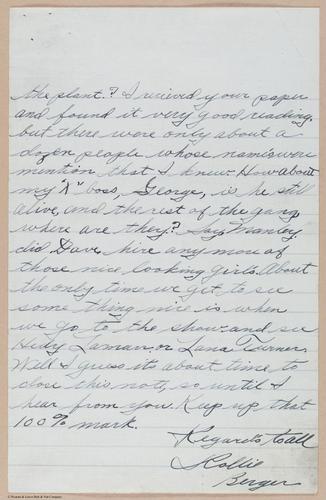 the plant? I recieved your paper
and found it very good reading,
but there were only about a
dozen people whose names were
mention that I knew. How about
my "X" boss, George, is he still
alive, and the rest of the gang
where are they? Say, Manley
did Dave hire any more of
those nice looking girls. About
the only time we get to see
some thing nice is when
we go to the show and see
Hedy Lamarr, or Lana Turner.
Well I guess it's about time to
close this note, so until I
hear from you. Keep up that
100% mark.
Regards to all
Hollie
Berger